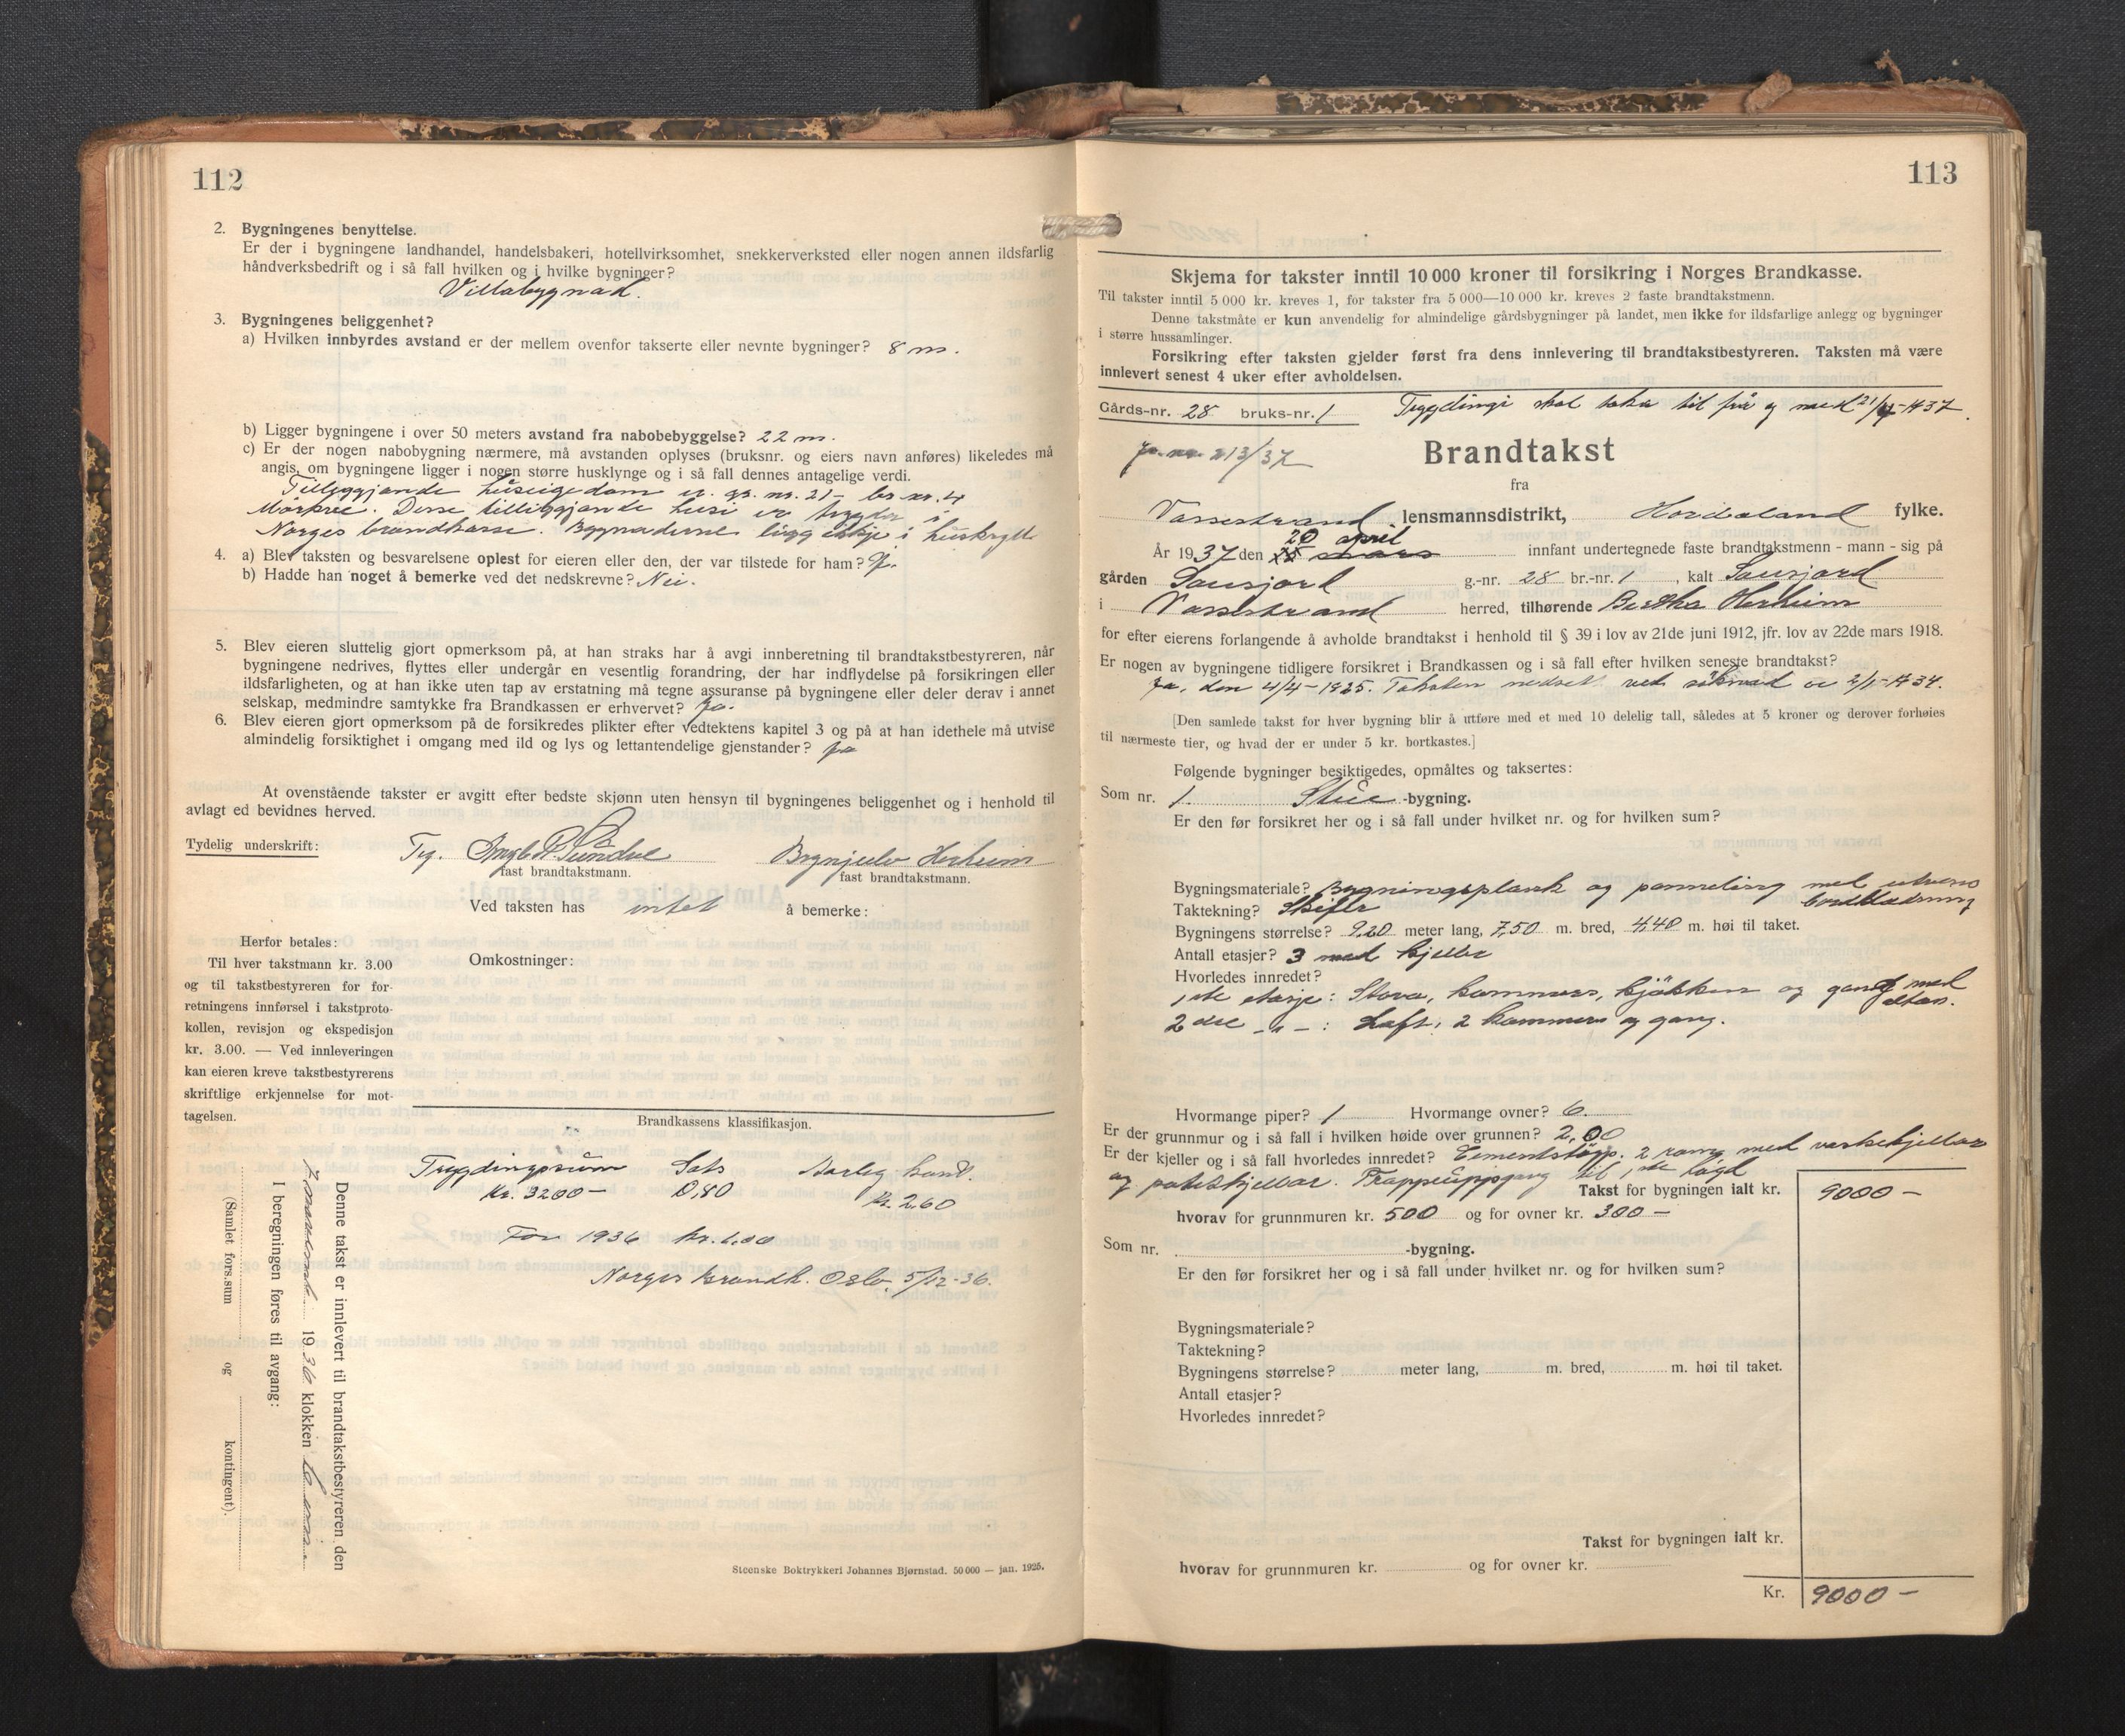 112
2. Bygningenes benyttelse.
Er der i bygningene landhandel, handelsbakeri, hotellvirksomhet, snekkerverksted eller nogen annen ildsfarlig
håndverksbedrift og i så fall hvilken og i hvilke bygninger?
Villabygnad.
3. Bygningenes beliggenhet?
a) Hvilken innbyrdes avstand er der mellem ovenfor takserte eller nevnte bygninger? 8 m.
b) Ligger bygningene i over 50 meters avstand fra nabobebyggelse? 22 m.
c) Er der nogen nabobygning nærmere, må avstanden oplyses (bruksnr. og eiers navn anføres) likeledes må
angis, om bygningene ligger i nogen større husklynge og i så fall dennes antagelige verdi.
Tilliggjande huseigedom er gr. nr. 21 - br. nr. 4
Desse tilliggjande husi er trygda i
Norges brandkasse. Bygnaderne ligg ikkje i
4. a) Blev taksten og besvarelsene oplest for eieren eller den, der var tilstede for ham? Ja.
b) Hadde han noget å bemerke ved det nedskrevne? Nei.
5. Blev eieren sluttelig gjort opmerksom på, at han straks har å avgi innberetning til brandtakstbestyreren, når
bygningene nedrives, flyttes eller undergår en vesentlig forandring, der har indflydelse på forsikringen eller
ildsfarligheten, og at han ikke uten tap av erstatning må tegne assuranse på bygningene eller deler derav i annet
selskap, medmindre samtykke fra Brandkassen er erhvervet? Ja.
6. Blev eieren gjort opmerksom på de forsikredes plikter efter vedtektens kapitel 3 og på at han idethele må utvise
almindelig forsiktighet i omgang med ild og lys og lettantendelige gjenstander? Ja
At ovenstående takster er avgitt efter bedste skjønn uten hensyn til bygningenes beliggenhet og i henhold til
avlagt ed bevidnes herved.
Tydelig underskrift: Brynjulv Herheim
fast brandtakstmann. fast brandtakstmann.
Ved taksten has intet å bemerke:
Omkostninger:
Herfor betales:
Til hver takstmann kr. 3.00
og til takstbestyreren for for-
retningens innførsel i takstproto-
kollen, revisjon og ekspedisjon
kr. 3.00. — Ved innleveringen
kan eieren kreve takstbestyrerens
skriftlige erkjennelse for mot-
tagelsen.
Brandkassens klassifikasjon.
Trygdingssum Sats Aarleg kont.
Kr. 3200- 0,80 Kr. 2.60
For 1936 kr. 1,00
Norges Brandk. Oslo 5/12-36.
Denne takst er innlevert til brandtakstbestyreren den
1936 klokken
I beregningen føres til avgang:
(Samlet fors.sum og kontingent).
Steenske Boktrykkeri Johannes Bjørnstad. 50 000 — jan. 1925.
113
Skjema for takster inntil 10 000 kroner til forsikring i Norges Brandkasse.
Til takster inntil 5 000 kr. kreves 1, for takster fra 5 000—10 000 kr. kreves 2 faste brandtakstmenn.
Denne takstmåte er kun anvendelig for almindelige gårdsbygninger på landet, men ikke for ildsfarlige anlegg og bygninger
i større hussamlinger.
Forsikring efter taksten gjelder først fra dens innlevering til brandtakstbestyreren. Taksten må være
innlevert senest 4 uker efter avholdelsen.
Gårds-nr. 28 bruks-nr. 1 Trygdingi skal taka til frå og med 21/4-1937.
J. nr. 213/37
Brandtakst
fra
Vossestrand lensmannsdistrikt, Hordaland fylke.
20 april
År 1937 den mars innfant undertegnede faste brandtakstmenn - mann - sig på
gården g.-nr. 28 br.-nr. 1, kalt
i Vossestrand herred, tilhørende Bertha Herheim
for efter eierens forlangende å avholde brandtakst i henhold til § 39 i lov av 21de juni 1912, jfr. lov av 22de mars 1918.
Er nogen av bygningene tidligere forsikret i Brandkassen og i så fall efter hvilken seneste brandtakst?
Ja, den 4/4-1925. Taksten nedset ved søknad av 2/1-1934.
[Den samlede takst for hver bygning blir å utføre med et med 10 delelig tall, således at 5 kroner og derover forhøies
til nærmeste tier, og hvad der er under 5 kr. bortkastes.]
Følgende bygninger besiktigedes, opmåltes og taksertes:
Som nr. 1. Stue-bygning.
Er den før forsikret her og i så fall under hvilket nr. og for hvilken sum?
Bygningsmateriale? Bygningsplank og panneling med utvens bordklædning
Taktekning? Skifer
Bygningens størrelse? 9,20 meter lang, 7,50 m. bred, 4,40 m. høi til taket.
Antall etasjer? 3 med kjeller
Hvorledes innredet?
1ste etasje: Stova, kammers, kjøkken og gang med altan.
2dre -"-: Loft, 2 kammers og gang.
Hvormange piper? 1 Hvormange ovner? 6.
Er der grunnmur og i så fall i hvilken høide over grunnen? 2,00
Er der kjeller og i så fall hvorledes innredet? Cementstøyp. 2 romg med vaskekjellar
og potetkjellar. Trappeuppgang til 1ste høgd
Takst for bygningen ialt kr. 9000-
hvorav for grunnmuren kr. 500 og for ovner kr. 300-
Som nr. -bygning.
Er den før forsikret her og i så fall under hvilket nr. og for hvilken sum?
Bygningsmateriale?
Taktekning?
Bygningens størrelse? meter lang, m. bred, m. høi til taket.
Antall etasjer?
Hvorledes innredet?
Takst for bygningen ialt kr.
hvorav for grunnmuren kr. og for ovner kr.
Kr. 9000-